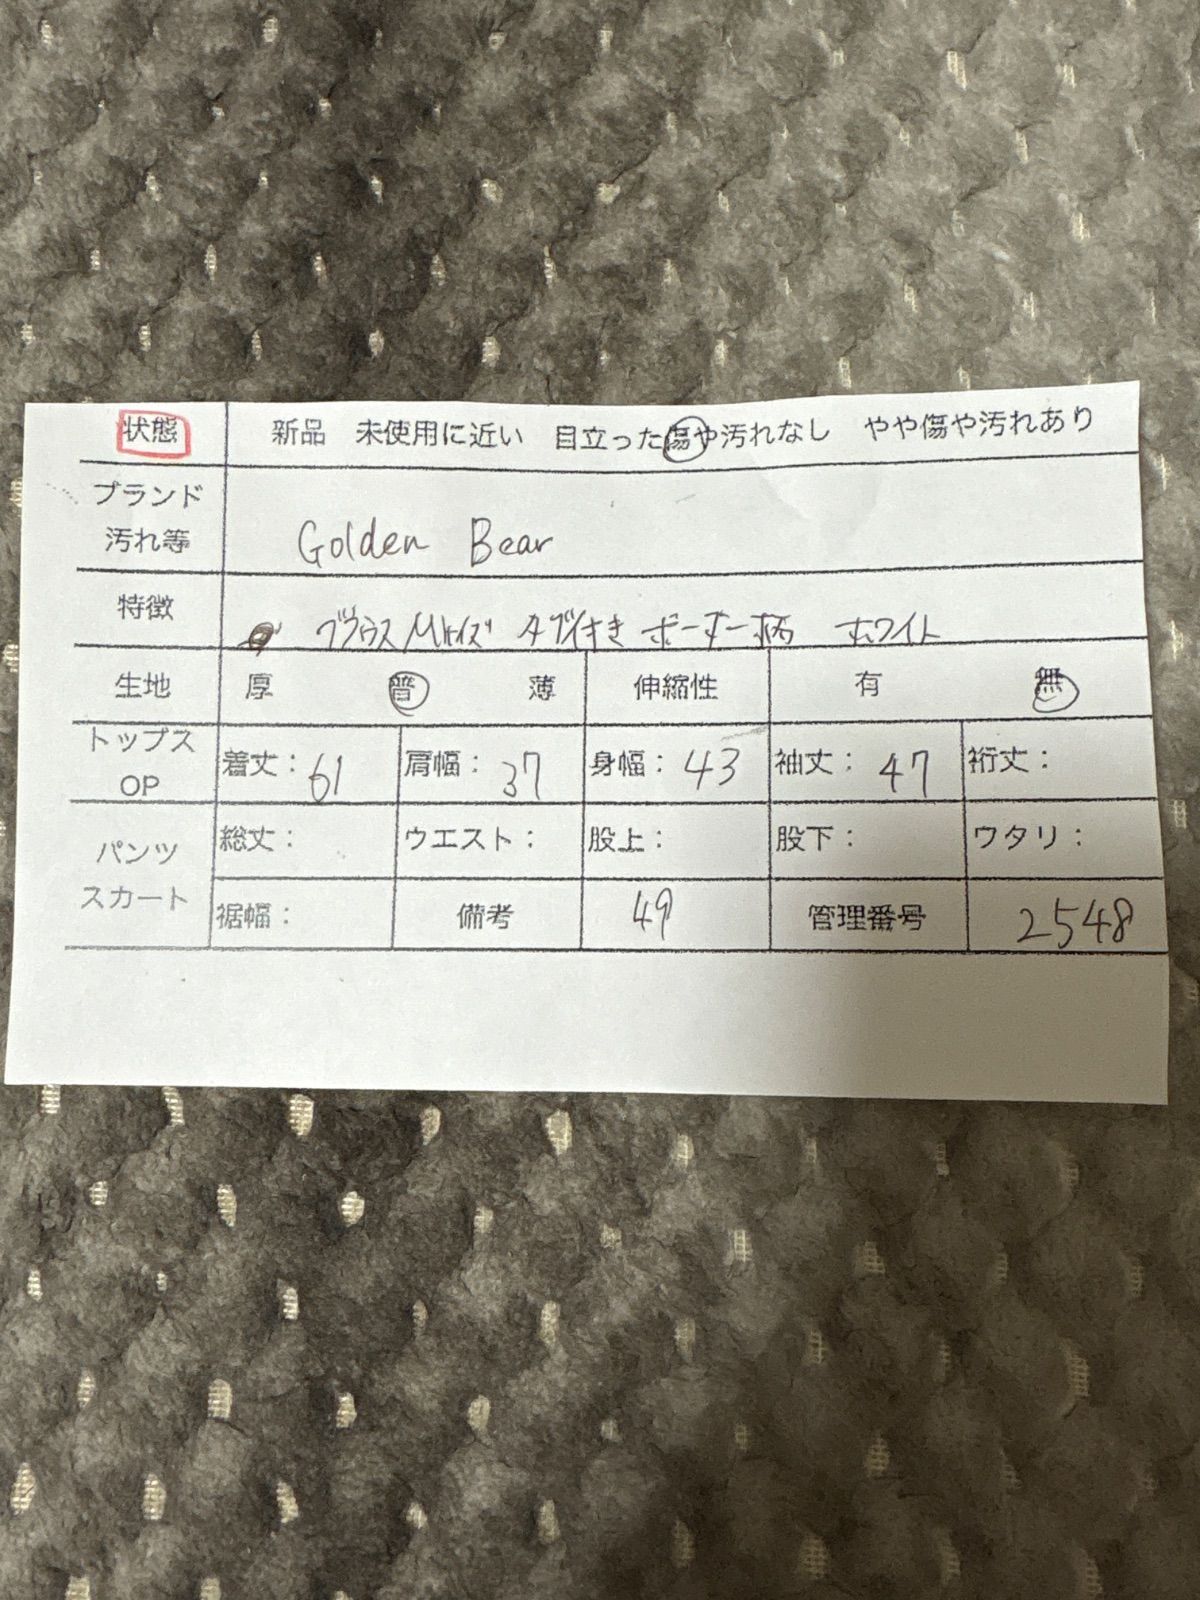 状態 新品 未使用に近い 目立った傷や汚れなし やや傷や汚れあり
ブランド
汚れ等 Golden Bear
特徴 ブラウス Mサイズ タグ付き ボーダー柄 ホワイト
生地 厚 普 薄 伸縮性 有 無
トップス
OP 着丈: 61 肩幅: 37 身幅: 43 袖丈: 47 裄丈:
パンツ
スカート
総丈: ウエスト: 股上: 股下: ワタリ:
裾幅: 備考 49 管理番号 2548